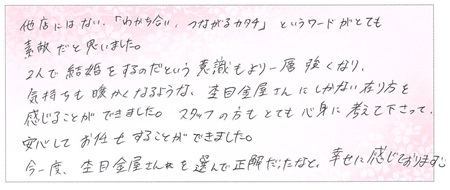 他店にはない、「わかち合い、つながるカタチ」というワードがとても
素敵だと思いました。
2人で結婚をするのだという意識もより一層強くなり、
気持ちも暖かくなるような、杢目金屋さんにしかない在り方を
感じることができました。スタッフの方もとても心身に考えて下さって、
安心してお任せすることができました。
今一度、杢目金屋さんを選んで正解だったなと、幸せに感じております。